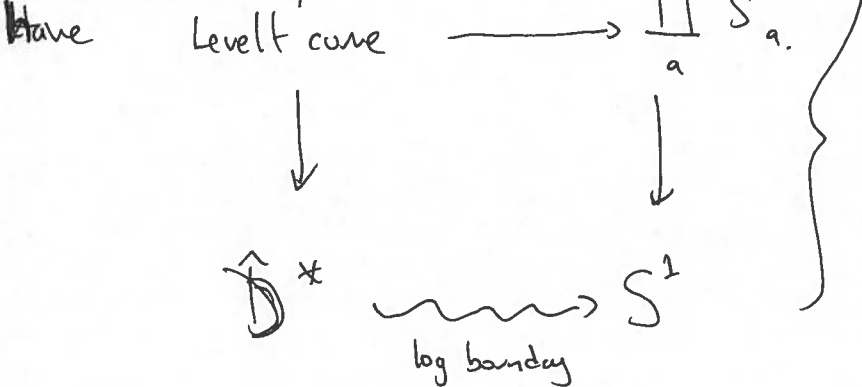 Have Levelt curve ⟶ ∐_a S_a.
D̂* ⇝ S^1
log boundary